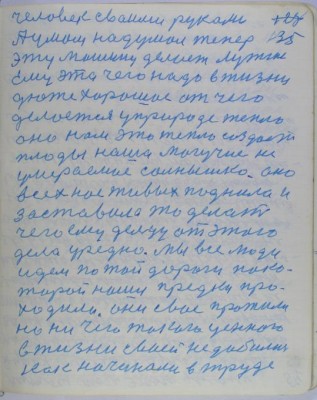 человек своими руками
А умом надумал тепер 135
эту машину делает лутше
ему эта чего надо в жизни
дюже хорошое от чего
делается у природе тепло
оно нам это тепло создаеть
плоды наша могучие не
умераемое солнышко. оно
всех нас живых подняла и
заставила то делать
чего ему делу от этого
дела уредно. мы все люди
идем по той дороги пако-
торой наши предки про-
ходили. они свое прожили
но ни чего такого ценного
в жизни своей недобились
как начинали в труде